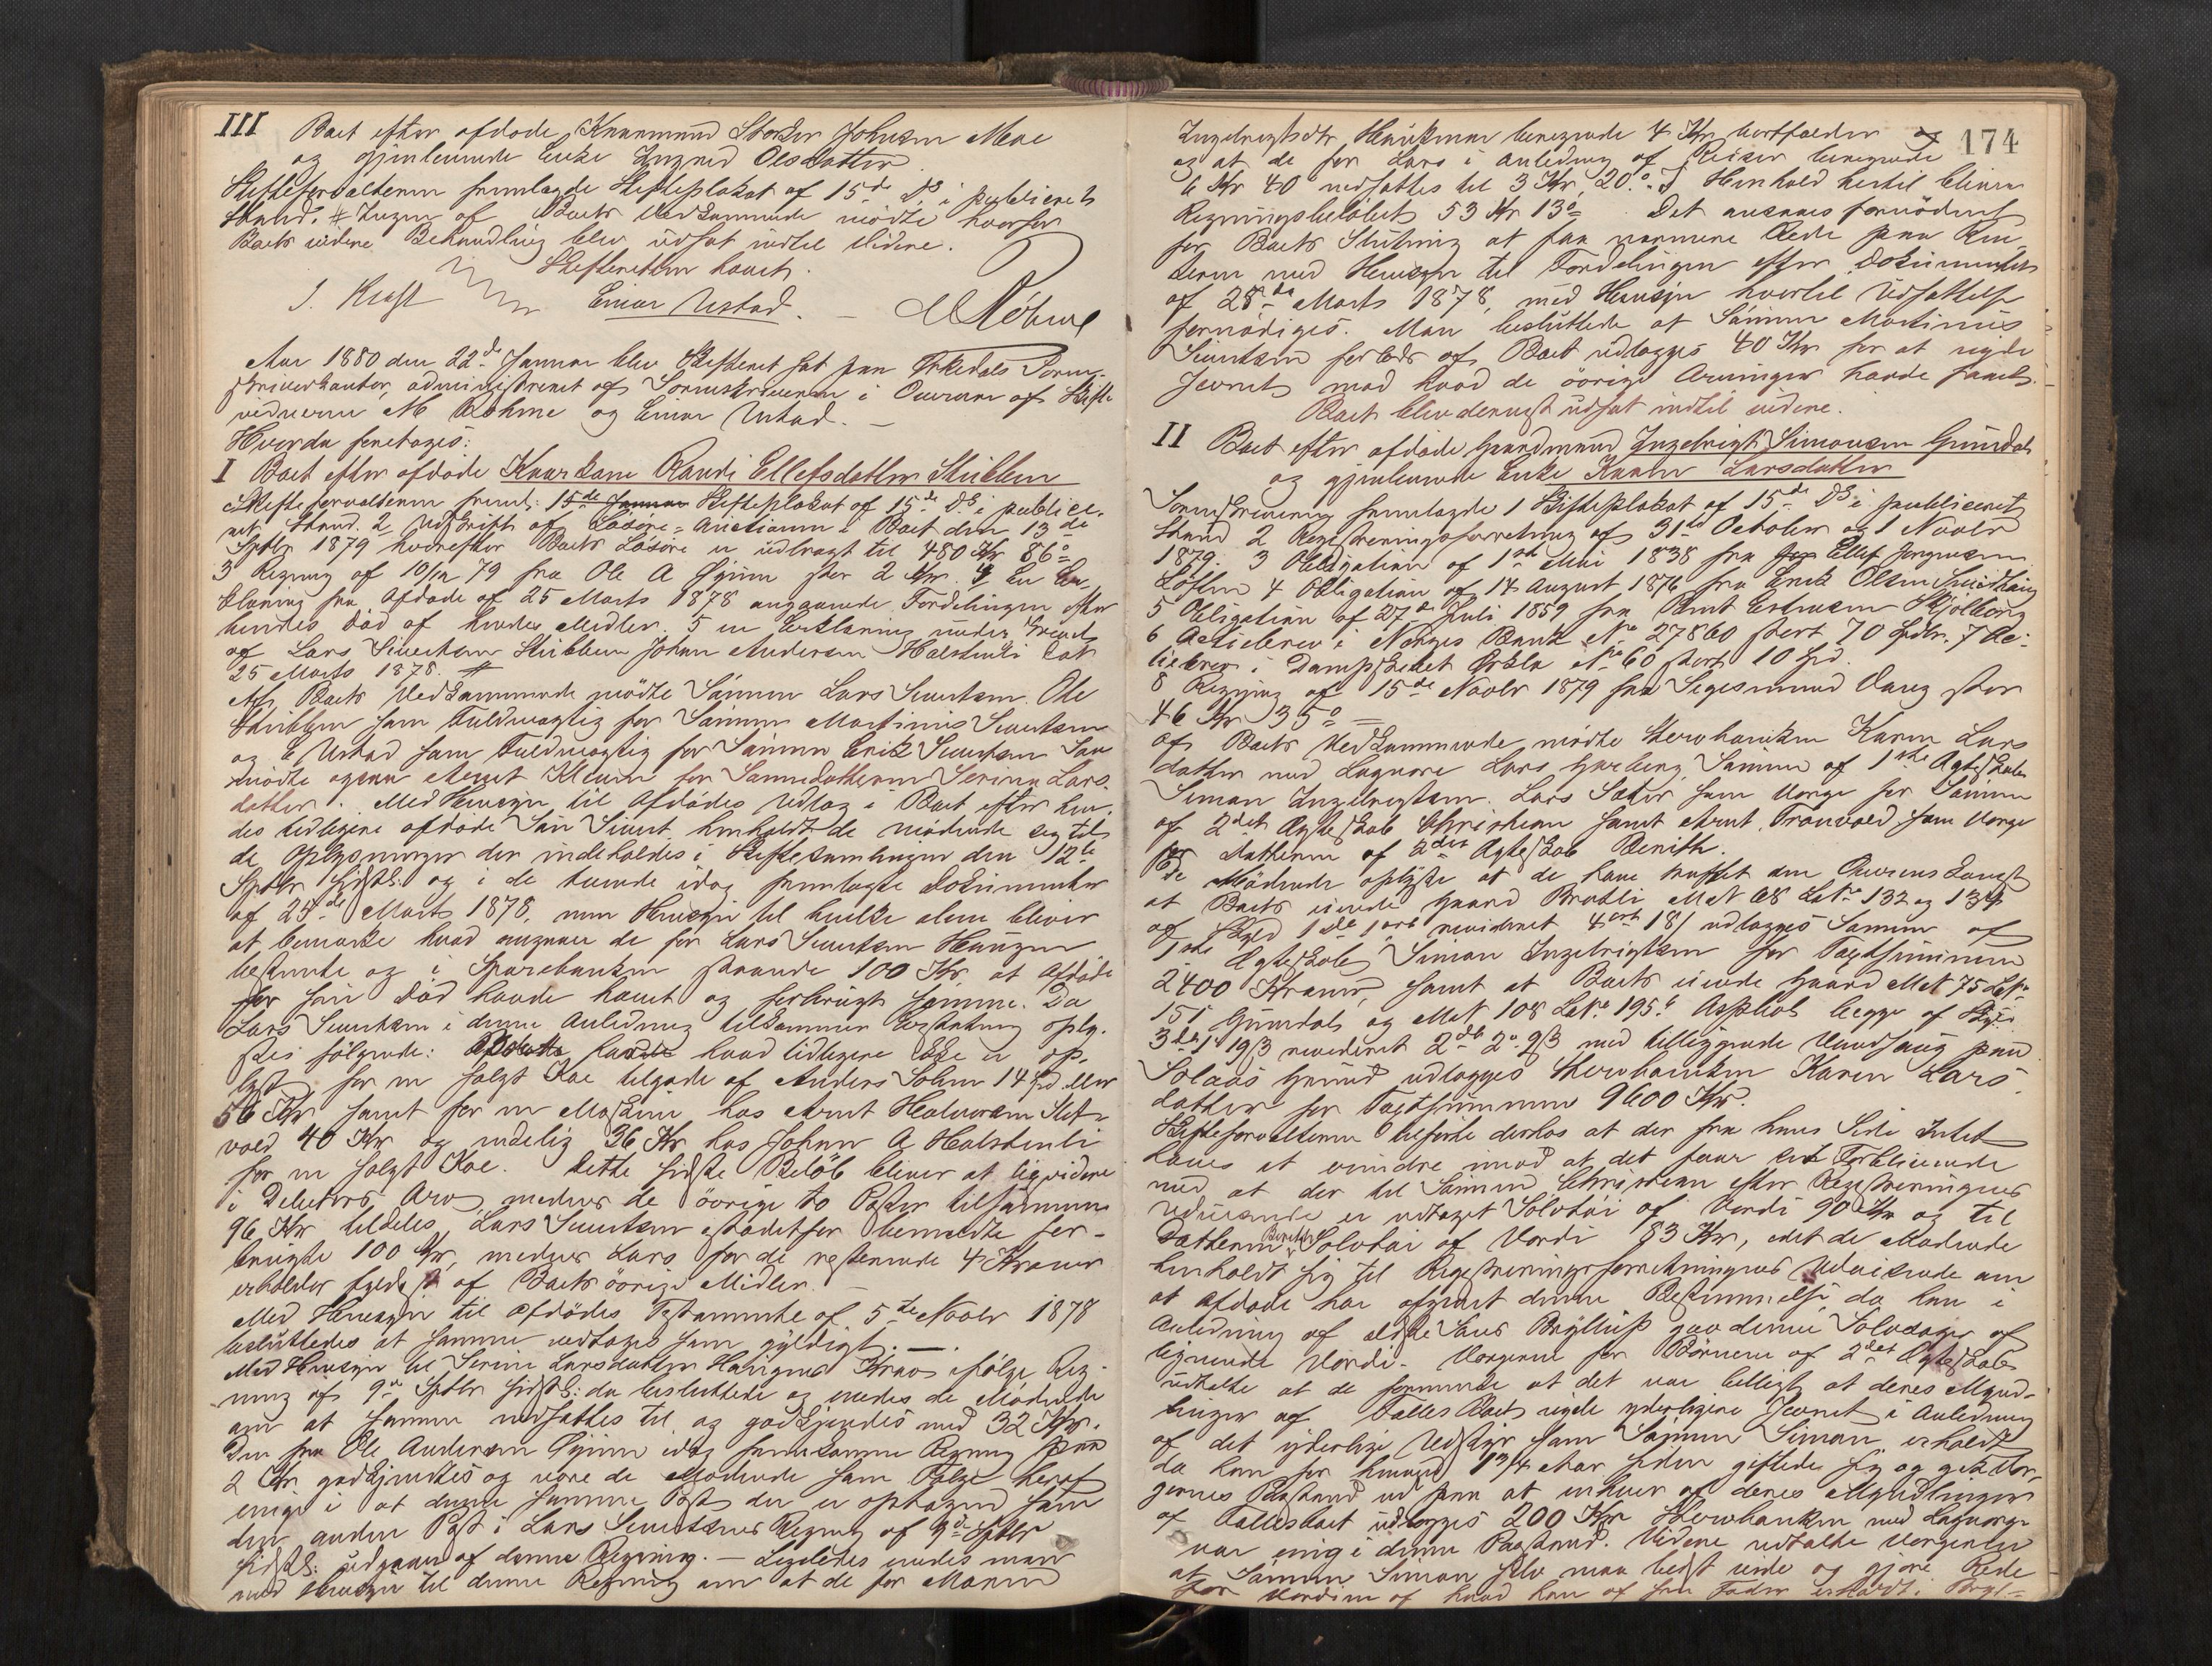 III Boet efter afdøde Kaarmand Størker Johnsen Moe
og gjenlevende Enke Ingrid Olsdatter
Skifteforvalteren fremlagde Skifteplakat af 15de Ds i publiceret
Stand. # Ingen af Boets Vedkommende mødte hvorfor
Boets videre Behandling blev udsat indtil videre.
Skifteretten hævet.
J. Kraft Einar Ustad. M Röhme
Aar 1880 den 22de Januar blev Skifteret sat paa Orkedals Soren-
skriverkontor, administreret af Sorenskriveren i Overvær af Skifte
vidnerne M Röhme og Einar Ustad. —
Hvorda foretoges:
I Boet efter afdøde Kaarkone Randi Ellefsdatter Stubben
Skifteforvalteren freml: 15de Januar Skifteplakat af 15de Ds i publice-
ret Stand. 2 Udskrift af Løsøre-Auctionen i Boet den 13de
Septbr 1879 hvorefter Boets Løsøre er udbragt til 480 Kr 86 ø
3 Regning af 10/12 79 fra Ole A Öyum stor 2 Kr. 4 En Er-
klæring fra Afdøde af 25 Marts 1878 angaaende Fordelingen efter
hendes Død af hendes Midler. 5 en Erklæring
af Lars Sivertsen Stubben Johan Andersen Holstenli
25 Marts 1878. #
Af Boets Vedkommende mødte Sønnen Lars Sivertsen. Ole
Stubben som Fuldmægtig for Sønnen Martinus Sivertsen
og E Ustad som Fuldmægtig for Sønnen Erik Sivertsen
mødte ogsaa Arnt for Sønnedatteren Serina Lars-
datter. Med Hensyn til Afdødes Udlæg i Boet efter hen-
des tidligere afdøde Søn Sivert henholdt de mødende sig til
de Oplysninger der indeholdes i Skiftesamlingen den 12te
Septbr sidstl: og i de tvende idag fremlagte Dokumenter
af 25de Marts 1878, men Hensyn til hvilke alene bliver
at bemærke hvad angaaer de for Lars Sivertsen Haugen
bestemte og i Sparebanken staaende 100 Kr, at Afdøde
før sin Død havde hævet og forbrugt samme. Da
Lars Sivertsen i denne Anledning tilkommer Erstatning oply-
stes følgende: hvad tidligere ikke er op-
lyst for en solgt Koe tilgode af Anders Solum 14 Spd eller
56 Kr samt for en Maskine hos Arnt Halvorsen Slet-
vold 40 Kr og endelig 36 Kr hos Johan A Holstenli
for en solgt Koe. Dette sidste Beløb bliver at liqvidere
i Debitors Arv, medens de øvrige to Poster tilsammen
96 Kr tildeles Lars Sivertsen istedetfor bemeldte for-
brugte 100 Kr, medens Lars for de resterende 4 Kroner
erholder Fyldest af Boets øvrige Midler. —
Med Hensyn til Afdødes Testamente af 5te Novbr 1878
besluttedes at samme vedtages som gyldigt. —
Med Hensyn til Serine Larsdatter Haugens Krav ifølge Reg-
ning af 9de Septbr sidstl: da besluttede og enedes de Mødende
om at samme nedsattes til og godkjendes med 32 Kr.
Den fra Ole Andersen Öyum idag fremkomne Regning paa
2 Kr godkjendtes og vare de Mødende som Følge heraf
enige i at denne samme Post der er optagen som
den anden Post i Lars Sivertsens Regning af 9de Septbr
sidstl: udgaar af denne Regning. — Ligeledes enedes man
med Hensyn til denne Regning om at de for Maren
174
Ingebrigtsdtr Henriksmoe beregnede 4 Kr bortfalder og
og at de for Lars i Anledning af Reiser beregnede
6 Kr 40 nedsattes til 3 Kr. 20 ø. I Henhold hertil bliver
Regningsbeløbet 53 Kr 13 ø. Det ansaaes fornødent
for Boets Slutning at faa nærmere Rede paa
med Hensyn til Fordelingen efter Dokumentet
af 25de Marts 1878, med Hensyn hvortil Udsættelse
fornødiges. Man besluttede at Sønnen Martinus
Sivertsen forlods af Boet udlægges 40 Kr for at nyde
Jevnet mod hvad de øvrige Arvinger havde faaet. —
Boet blev dernæst udsat indtil videre.
II Boet efter afdøde Gaardmand Ingebrigt Simonsen Gumdal
og gjenlevende Enke Karen Larsdatter
Sorenskriveren fremlagde 1 Skifteplakat af 15de Ds i publiceret
Stand 2 Registreringsforretning af 31te October og 1 Novbr
1879. 3 Obligation af 1ste Mai 1838 fra Ellef Jørgensen
Loften 4 Obligation af 14 August 1876 fra Erik Olsen Smidhaug
5 Obligation af 27de Juli 1859 fra Bent Estensen Hjølberg
6 Actiebrev i Norges Bank No 27860 stort 70 Spdlr. 7 Ac-
tiebrev i Dampskibet Orkla No 60 stort 10 Spd.
8 Regning af 15de Novbr 1879 fra Segesmund Varg stor
46 Kr 35 ø —
Af Boets Vedkommende mødte Stervboenken Karen Lars
datter med Laugværge Lars Garberg, Sønnen af 1ste Ægteskab
Simon Ingebrigtsen. Lars Sæter som Verge for Sønnen
af 2det Ægteskab Christian samt Arnt Tronvold som Verge
for Datteren af 2det Ægteskab Berith.
De Mødende oplyste at de have truffet den Overenskomst
at Boets eiende Gaard Bratli Mat 68 LNo 132 og 134
af Skyld 1 Dlr 1 ort revideret 4 ort 18 β udlægges Sønnen af
1ste Ægteskab Simon Ingebrigtsen for Taxtsummen
2400 Kroner, samt at Boets eiende Gaard Mat 75 LNo
151 Gumdal og Mat 108 LNo 195 b Aspliot begge af Skyld
3 Dlr 1 19 β revideret 2 Dlr 2 o 9 β med tilliggende Vandsaug paa
Solaas Grund udlægges Stervboenken Karen Lars-
datter for Taxtsummen 9600 Kr.
Skifteforvalteren tilføiede derhos at der fra hans Side Intet
haves at erindre imod at det faar sit Forblivende
med at der til Sønnen Christian efter Registreringens
Udvisende er udtaget Sølvtøi af Værdi 90 Kr og til
Datteren Berith Sølvtøi af Værdi 83 Kr, idet de Mødende
henholdt sig til Registreringsforretningens Udvisende om
at Afdøde har afgivet denne Bestemmelse, da han i
Anledning af ældste Søns Bryllup gav denne Sølvsager af
lignende Værdi. Vergerne for Børnene af 2det Ægteskab
udtalte at de formente at det var billigt at deres Mynd-
linger af Fælles Boet nyde yderligere Jevnet i Anledning
af det yderligere Udstyr som Sønnen Simon erholdt
da han for henved 1 3/4 Aar siden giftede sig og gik Ver-
gernes Paastand ud paa at enhver af deres Myndlinger
af Fællesboet udlægges 200 Kr. Stervboenken med Laugværge
var enig i denne Paastand. Videre udtalte Vergerne
at Sønnen Simon selv maa bedst vide og gjøre Rede
for Værdien af hvad han af sin Fader erholdt. Bryl-